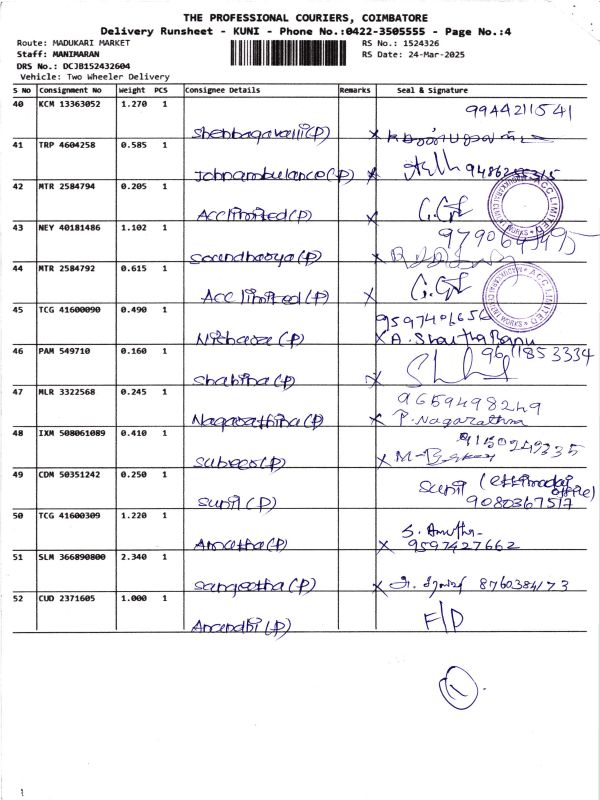 THE PROFESSIONAL COURIERS, COIMBATORE
Delivery Runsheet - KUNI - Phone No.:0422-3505555 - Page No.:4
Route: MADUKARI MARKET
RS No.: 1524326
Staff: MANIMARAN
RS Date: 24-Mar-2025
DRS No.: DCJB152432604
Vehicle: Two Wheeler Delivery
S No Consignment No Weight PCS Consignee Details Remarks Seal & Signature
40 KCM 13363052 1.270 1 9944211541
Shenbagavalli(P) X
41 TRP 4604258 0.585 1
Johnambulance(P) X
42 MTR 2584794 0.205 1
Acc limited(P) X
ACC LIMITED
43 NEY 40181486 1.102 1
Soundharya(P) X
44 MTR 2584792 0.615 1
Acc limited(P) X
ACC LIMITED
45 TCG 41600090 0.490 1 9597401656
X A. Shantha Banu
46 PAM 549710 0.160 1 9611853334
Shabina(P)
47 MLR 3322568 0.245 1 9659498249
Nagarathina(P) X P. Nagarathna
48 IXM 508061089 0.410 1
X M-
49 CDM 50351242 0.250 1 Sunil (ettimadai office)
Sunil(P) 9080367517
50 TCG 41600309 1.220 1 S. Amutha
Amutha(P) X 9597427662
51 SLM 366890800 2.340 1
Sangeetha(P) X 8760384173
52 CUD 2371605 1.000 1 F/D
Anandhi(P)
1